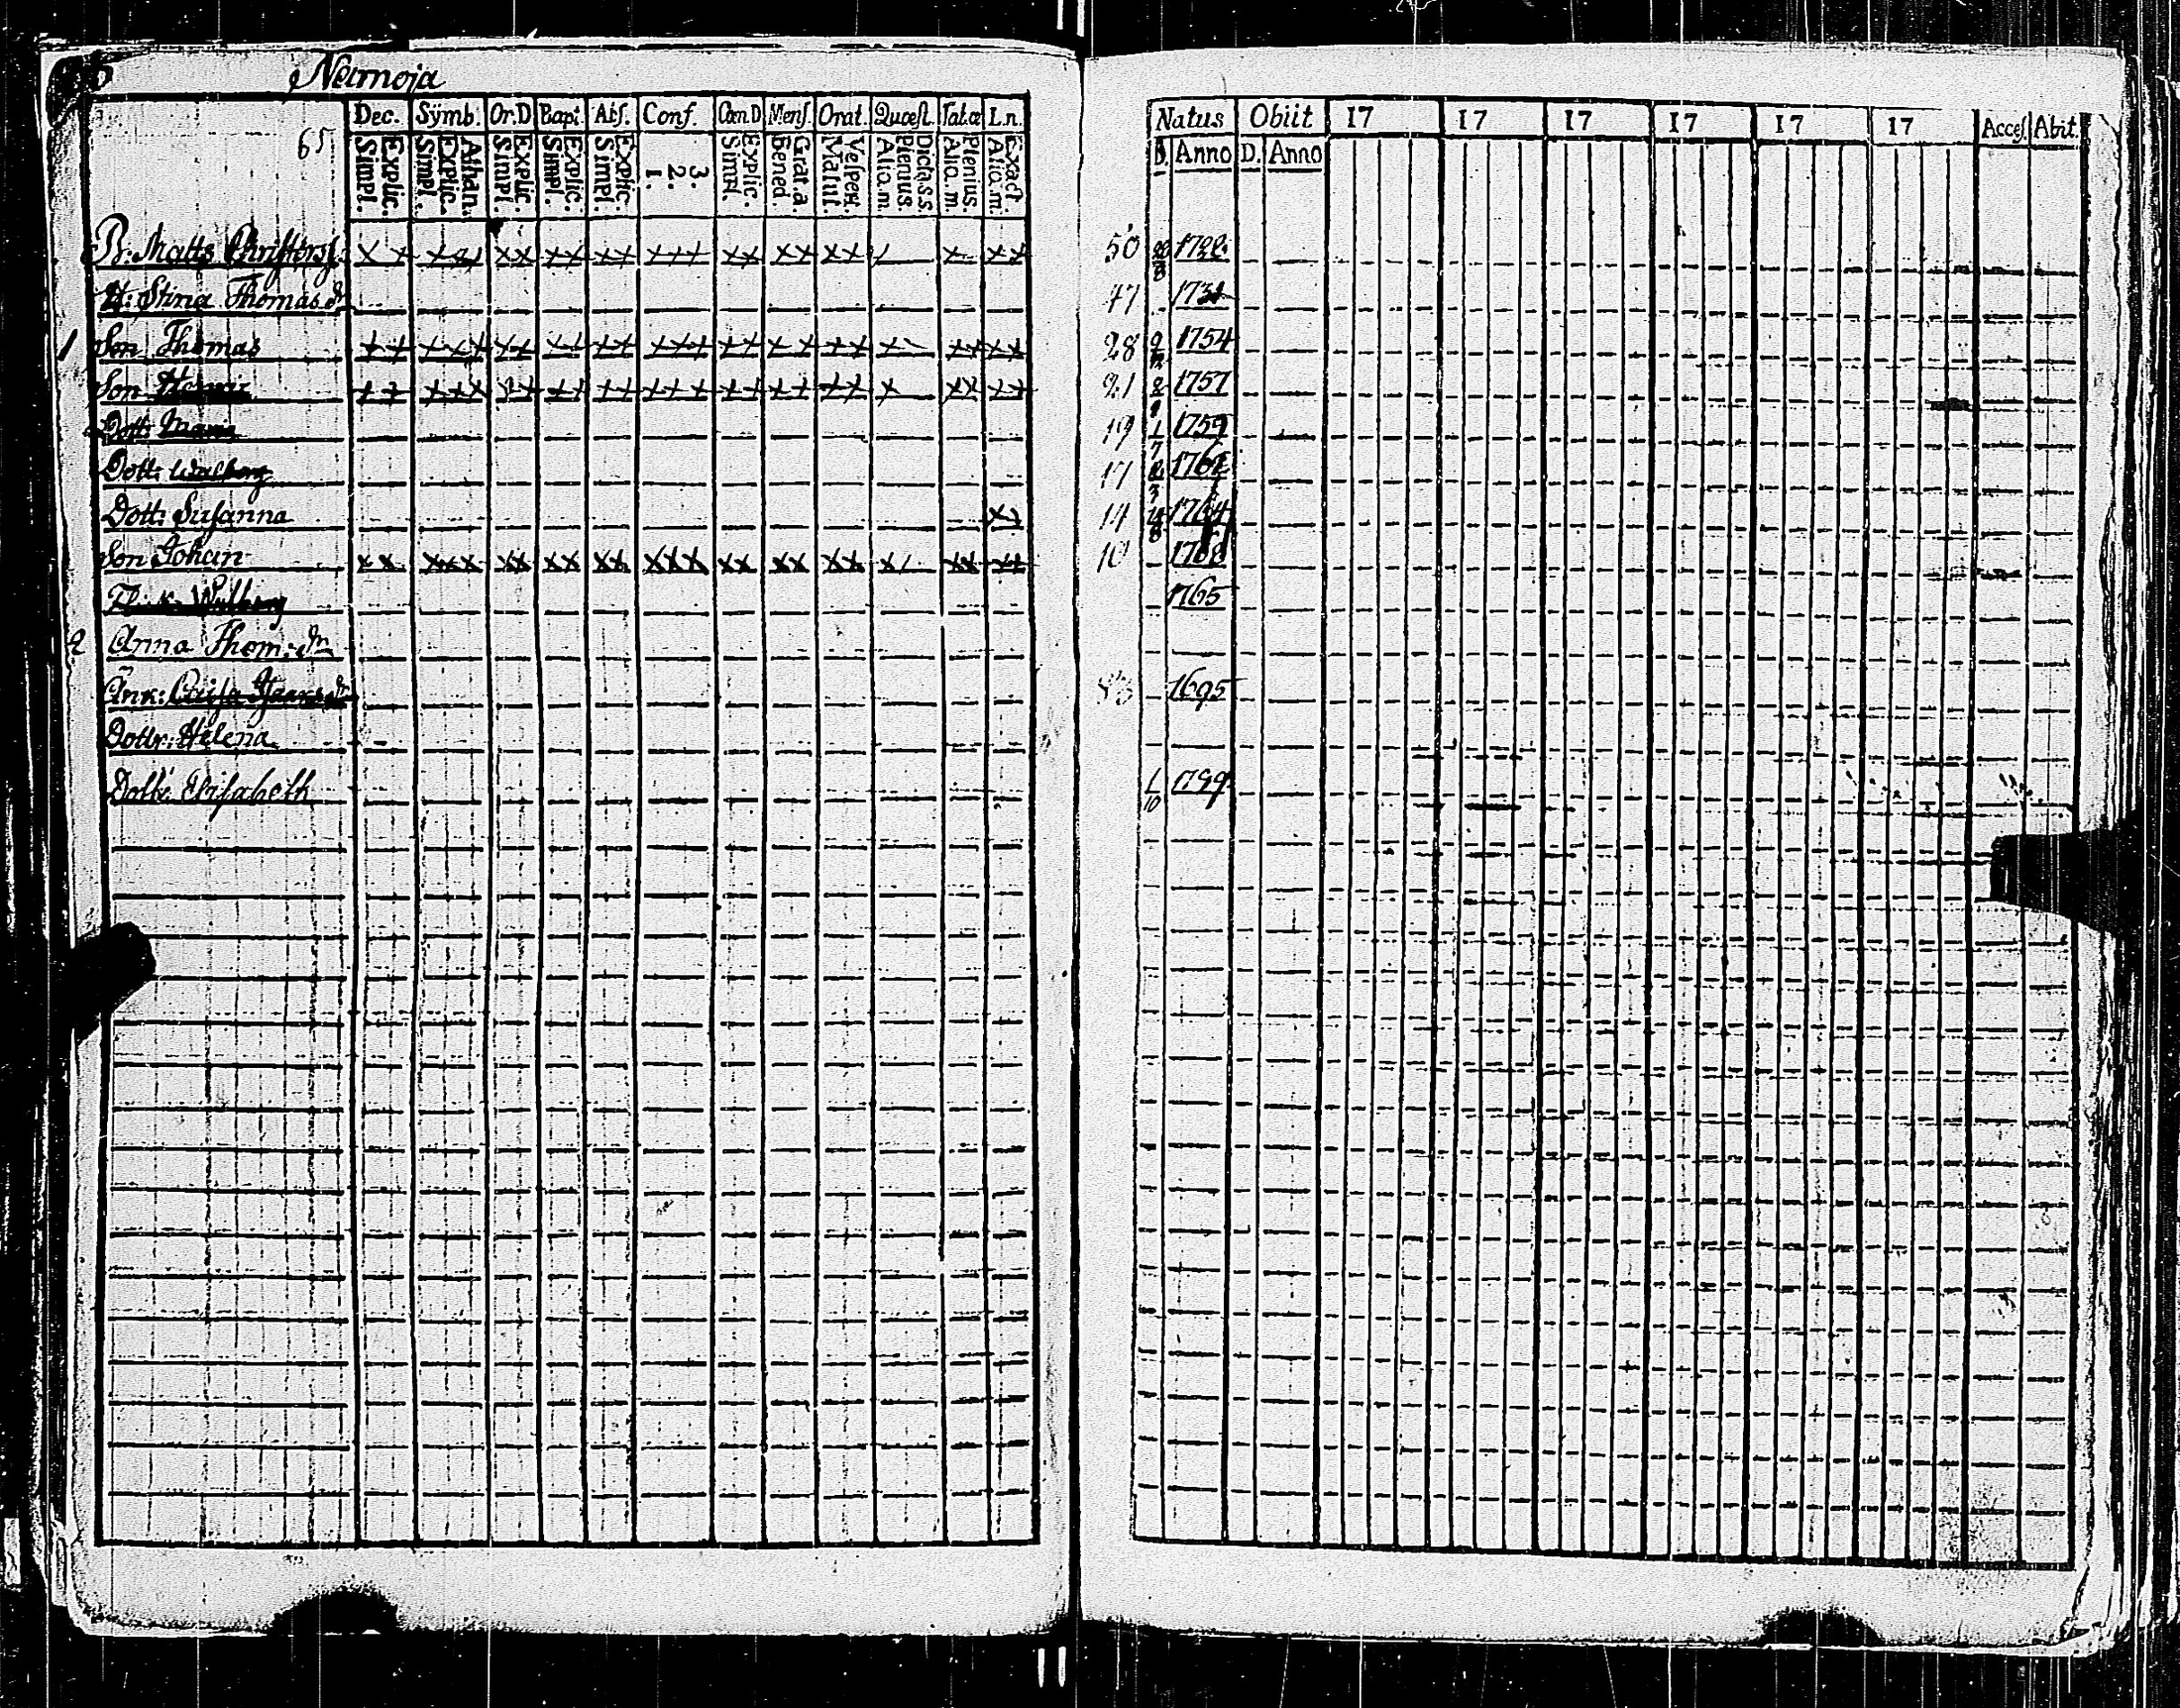 Neumoja
65
Dec. Symb. Or.D Bapt. Abs. Conf. Cœn.D Mens. Orat. Quæst. Tab.œ L.n.
Explic. Simpl. Athan. Explic. Simpl. Explic. Simpl. Explic. Simpl. Explic. Simpl. 3. 2. 1. Explic. Simpl. Grat.a. Bened. Vesper. Matut. Dicta.s.s. Plenius. Alio.m. Plenius. Alio.m. Exact. Alio.m.
Natus Obiit 17 17 17 17 17 17 Acces. Abit.
D. Anno D. Anno
B: Matts Christers. x x x x x x x x x x x x x x x x x x x x x x x x 50 1728
H: Stina Thomas dr 47 1731
1 Son Thomas x x x x x x x x x x x x x x x x x x x x x x x x x 28 1754
Son x x x x x x x x x x x x x x x x x x x x x x x x 21 1757
Dott: Maria 19 1 7 1759
Dott: Walborg 17 2 3 1761
Dott: Susanna x 14 1764
Son Johan x x x x x x x x x x x x x x x x x x x x x x x x 10 1768
Flick: Walborg 1765
2 Anna Thom: dr
Änk: Caisa 1695
Dottr: Helena
Dottr Elisabeth 1 10 1799